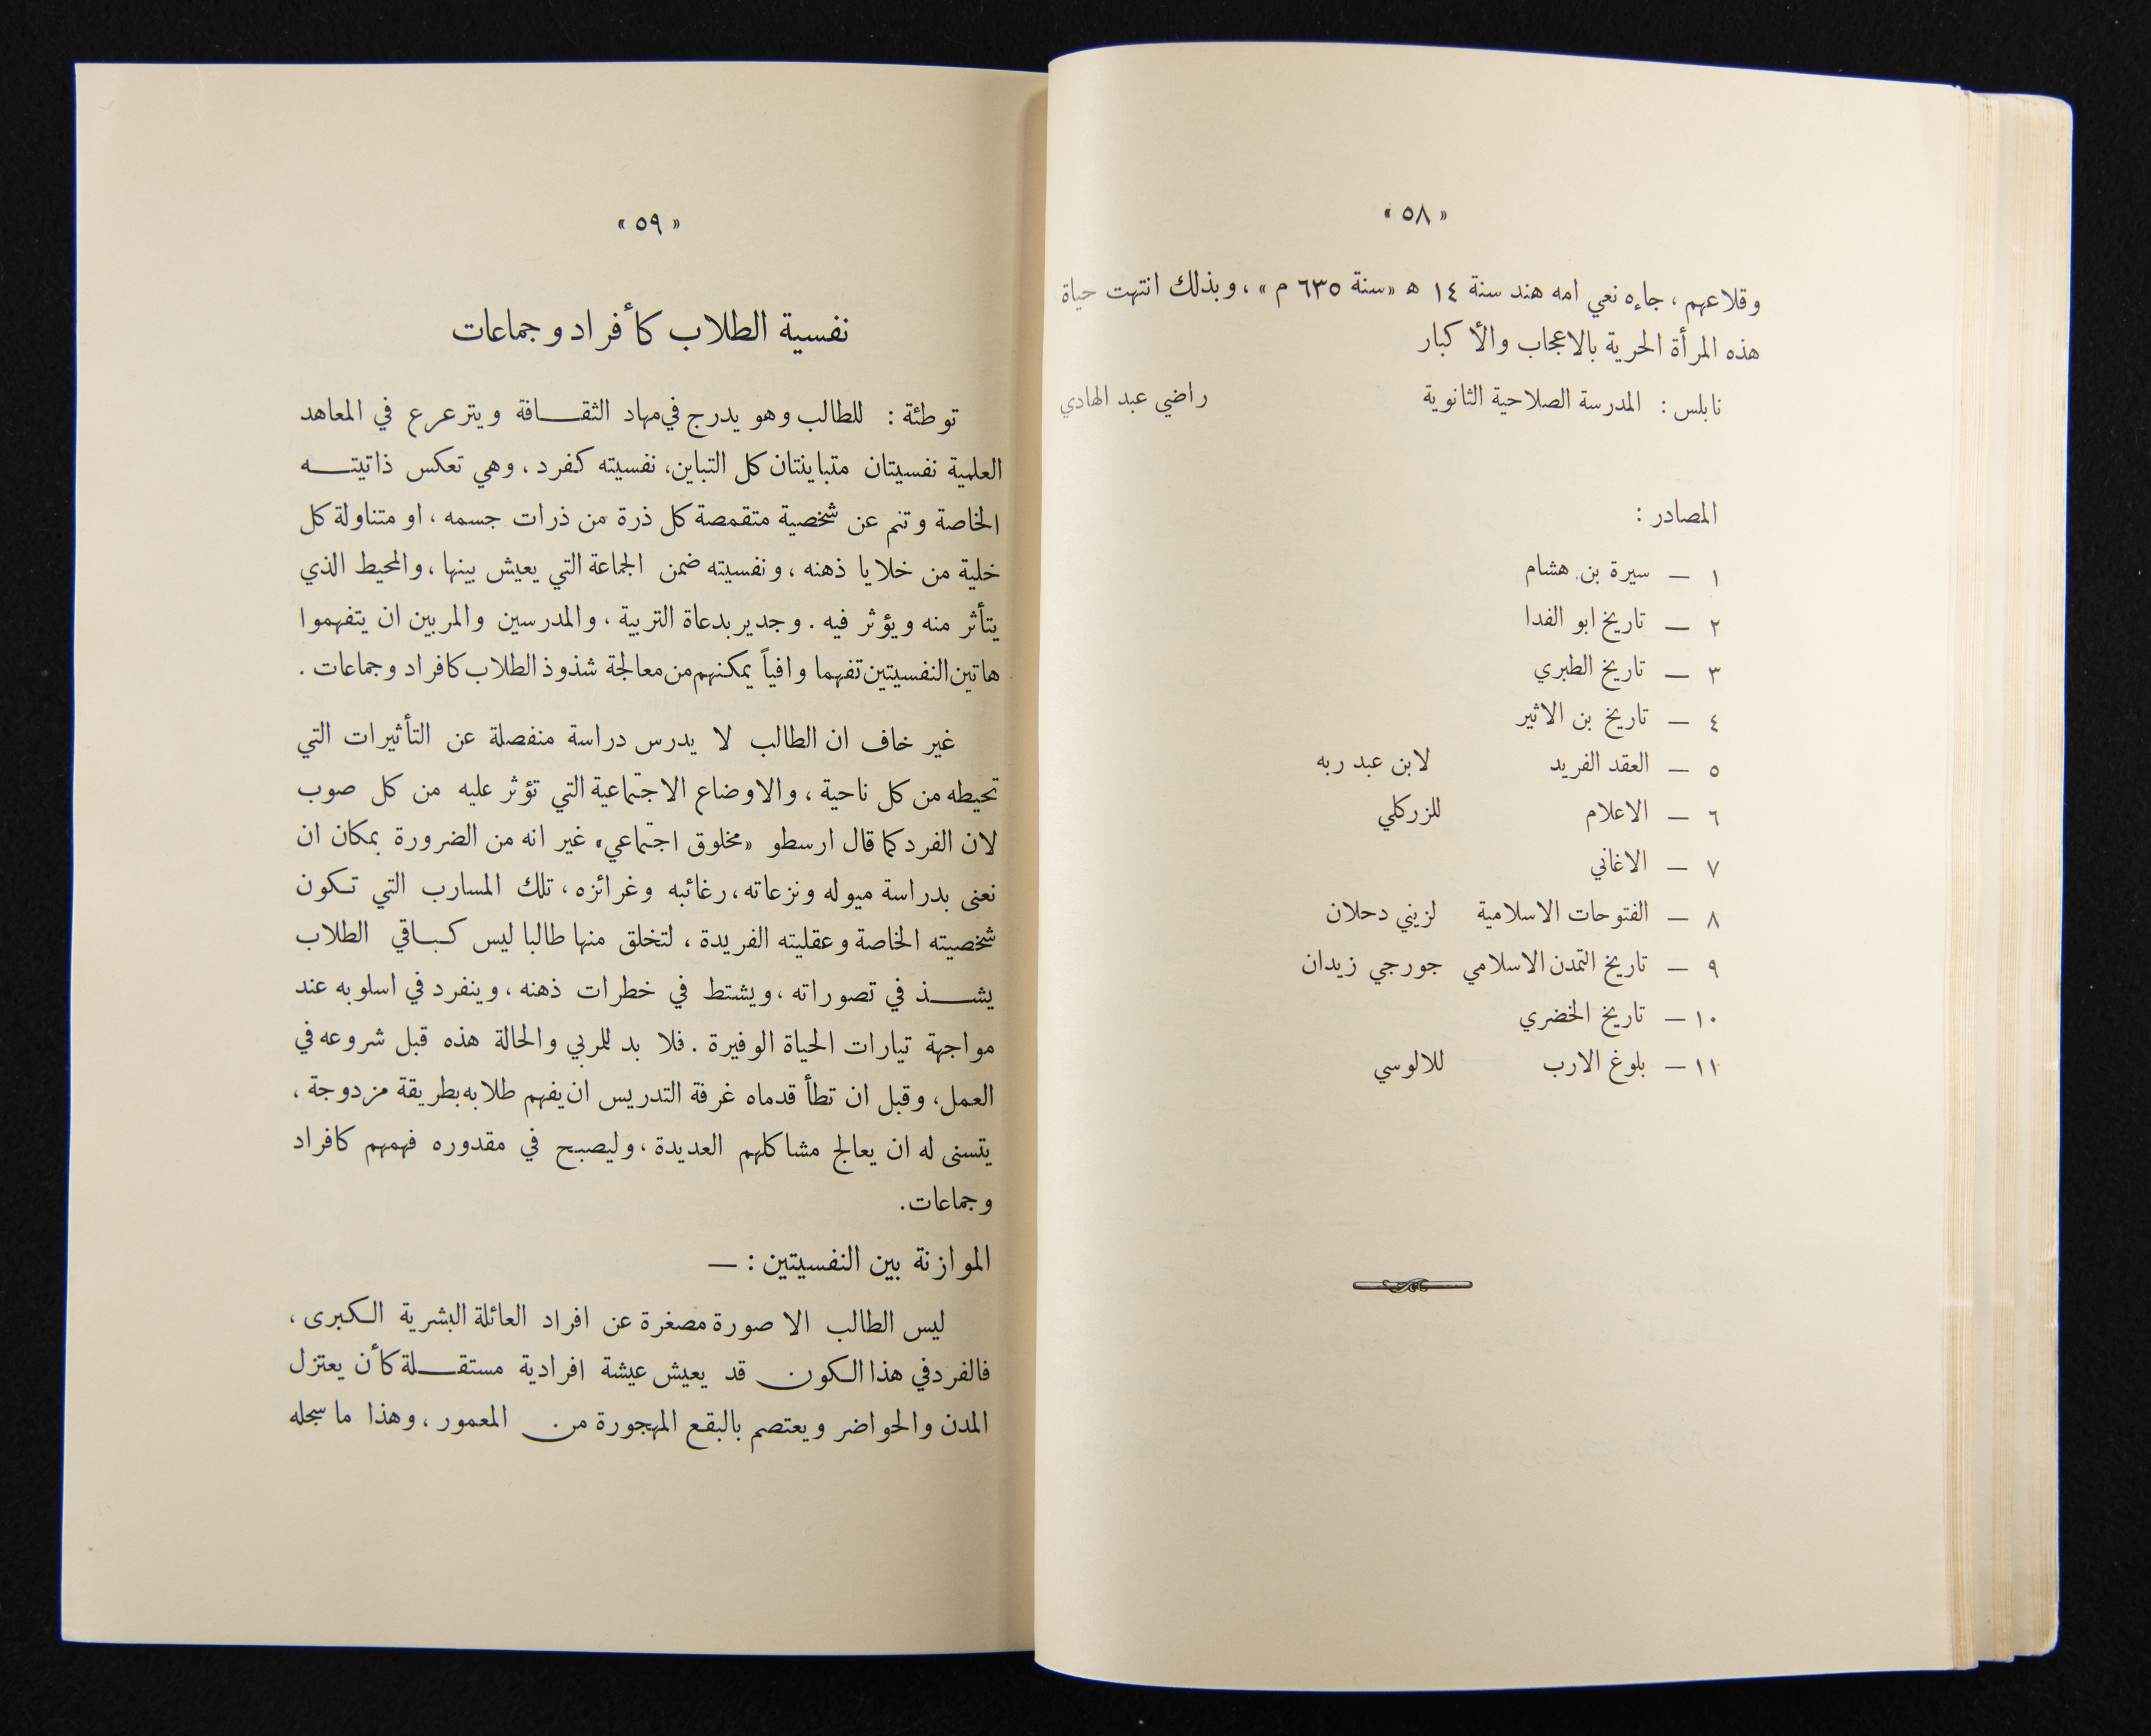 « ٥٨ »
وقلاعهم ، جاءه نعي امه هند سنة ١٤ ه «سنة ٦٣٥ م» ، وبذلك انتهت حياة
هذه المرأة الحرية بالاعجاب والأكبار
نابلس : المدرسة الصلاحية الثانوية راضي عبد الهادي
المصادر :
١ — سيرة بن هشام
٢ — تاريخ ابو الفدا
٣ — تاريخ الطبري
٤ — تاريخ بن الاثير
٥ — العقد الفريد لابن عبد ربه
٦ — الاعلام للزركلي
٧ — الاغاني
٨ — الفتوحات الاسلامية لزيني دحلان
٩ — تاريخ التمدن الاسلامي جورجي زيدان
١٠ — تاريخ الخضري
١١ — بلوغ الارب للالوسي
« ٥٩ »
نفسية الطلاب كأفراد وجماعات
توطئة : للطالب وهو يدرج في مهاد الثقافة ويترعرع في المعاهد
العلمية نفسيتان متباينتان كل التباين، نفسيته كفرد ، وهي تعكس ذاتيته
الخاصة وتنم عن شخصية متقمصة كل ذرة من ذرات جسمه ، او متناولة كل
خلية من خلايا ذهنه ، ونفسيته ضمن الجماعة التي يعيش بينها ، والمحيط الذي
يتأثر منه ويؤثر فيه . وجدير بدعاة التربية ، والمدرسين والمربين ان يتفهموا
هاتين النفسيتين تفهما وافياً يمكنهم من معالجة شذوذ الطلاب كافراد وجماعات .
غير خاف ان الطالب لا يدرس دراسة منفصلة عن التأثيرات التي
تحيطه من كل ناحية ، والاوضاع الاجتماعية التي تؤثر عليه من كل صوب
لان الفرد كما قال ارسطو «مخلوق اجتماعي» غير انه من الضرورة بمكان ان
نعنى بدراسة ميوله ونزعاته ، رغائبه وغرائزه ، تلك المسارب التي تكون
شخصيته الخاصة وعقليته الفريدة ، لتخلق منها طالبا ليس كباقي الطلاب
يشذ في تصوراته ، ويشتط في خطرات ذهنه ، وينفرد في اسلوبه عند
مواجهة تيارات الحياة الوفيرة . فلا بد للمربي والحالة هذه قبل شروعه في
العمل، وقبل ان تطأ قدماه غرفة التدريس ان يفهم طلابه بطريقة مزدوجة ،
يتسنى له ان يعالج مشاكلهم العديدة ، وليصبح في مقدوره فهمهم كافراد
وجماعات.
الموازنة بين النفسيتين : —
ليس الطالب الا صورة مصغرة عن افراد العائلة البشرية الكبرى ،
فالفرد في هذا الكون قد يعيش عيشة افرادية مستقلة كأن يعتزل
المدن والحواضر ويعتصم بالبقع المهجورة من المعمور ، وهذا ما سجله